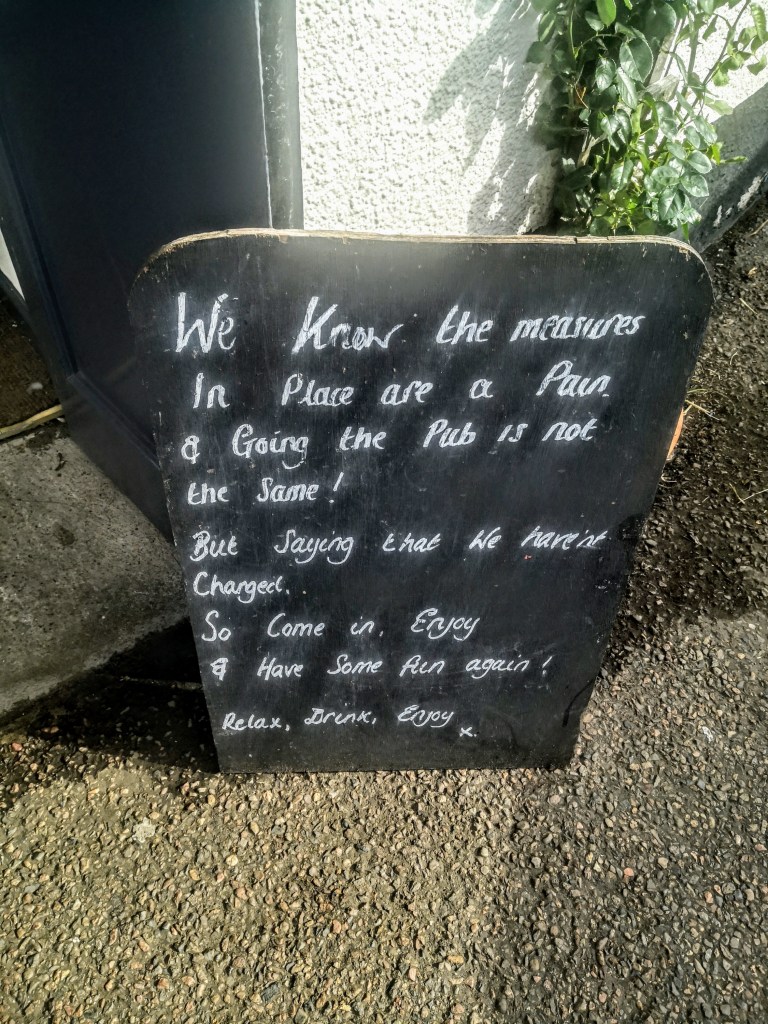 We Know the measures
In Place are a Pain
& Going the Pub is not
the Same!
But Saying that We have'nt
Changed..
So Come in, Enjoy
& Have Some fun again!
Relax, Drink, Enjoy
x.